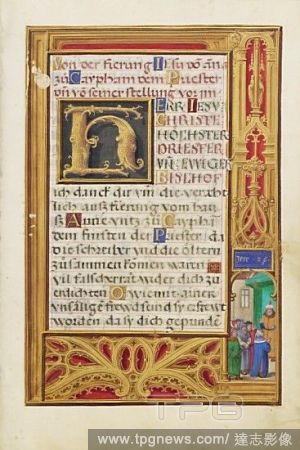 Von der fierung Jesu von An
zu Caypham dem Priester
vn von seiner stellung vor im
HERR IESV
CHRISTE
HOECHSTER
PRIESTER
VN EWIGER
BISCHOF
ich danck dir vm die veracht
lich auß fierung vom hau
ß Anne vntz zu Cayphe
dem finsten der Priester da
die schreiber vnd die öltern
zusammen komen warn
vil falscher rät wider dich zu
erdichten O wie mit ainer
vnsäglichen freud send sy erfreut
worden da sy dich gepunde
Jere · 26
TPG
www.tpgnews.com/ 達志影像